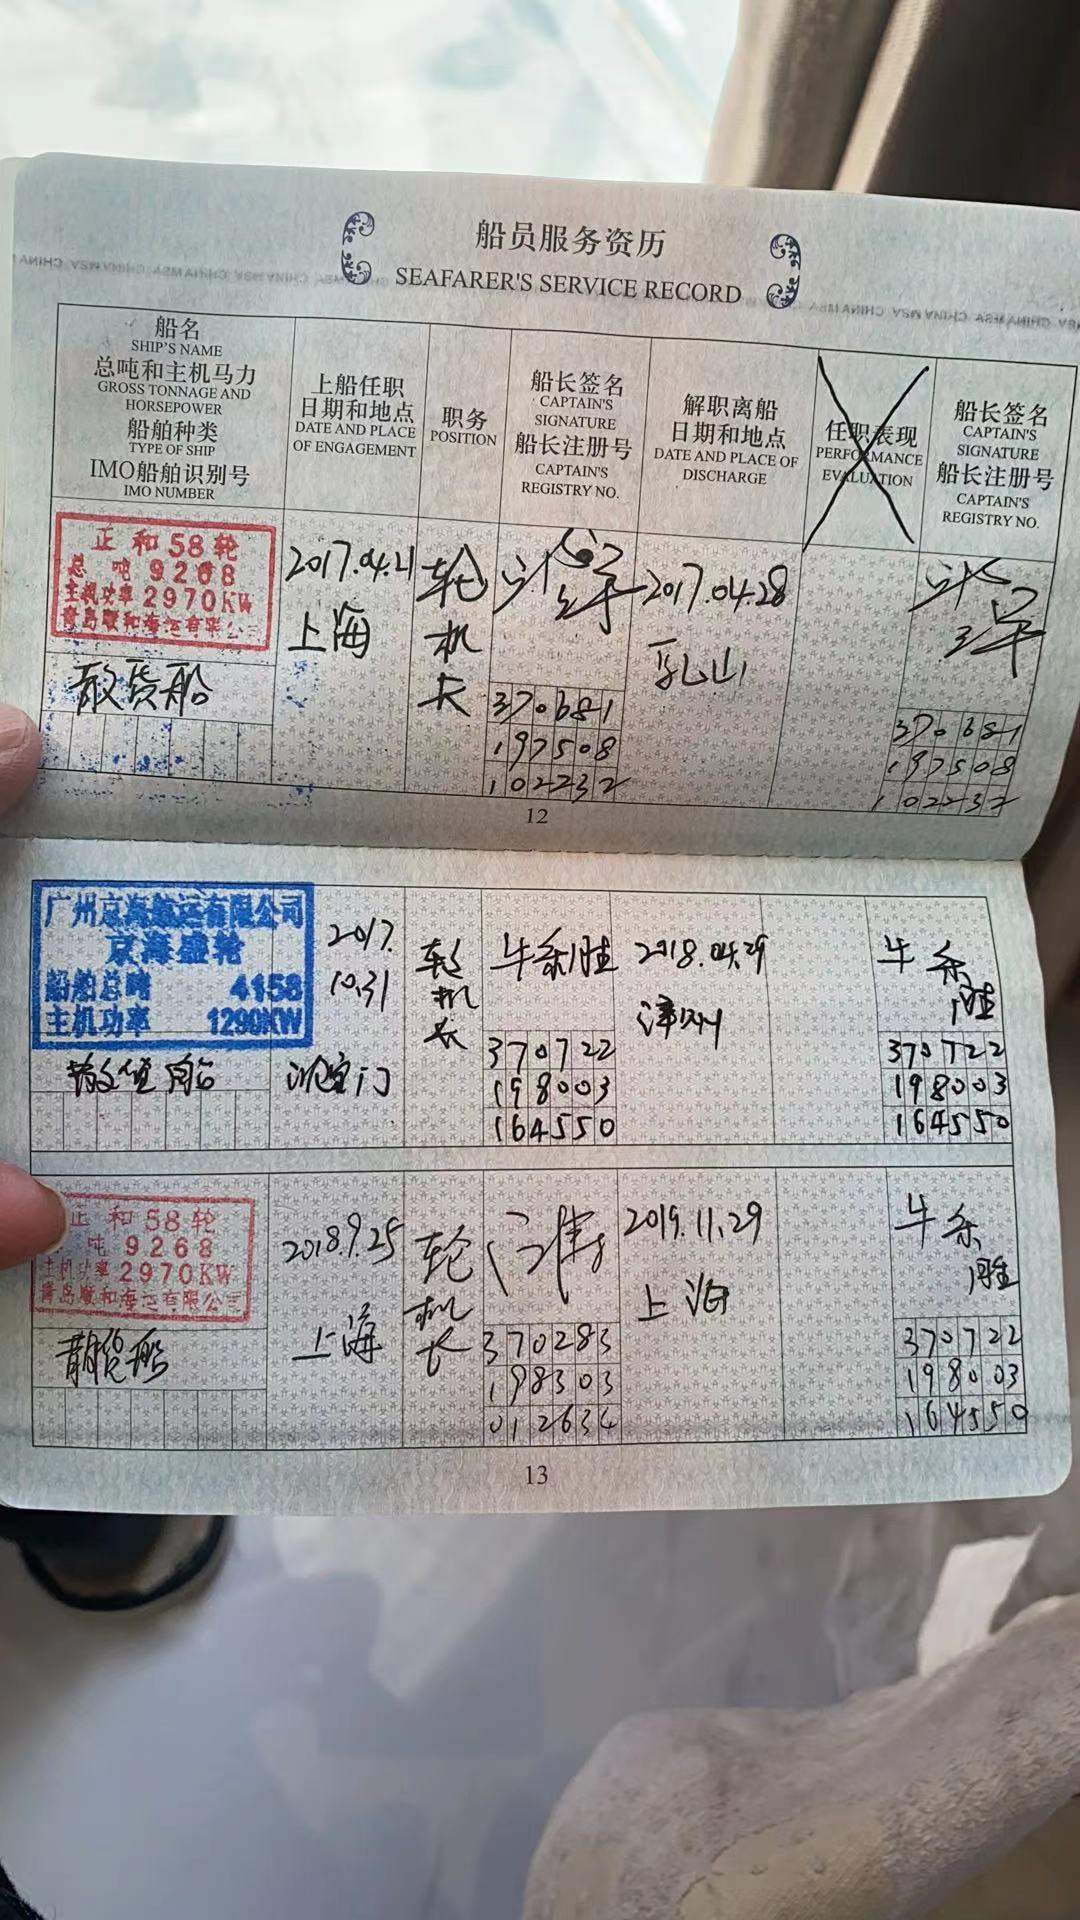 船员服务资历
SEAFARER'S SERVICE RECORD
船名
SHIP'S NAME
总吨和主机马力
GROSS TONNAGE AND
HORSEPOWER
船舶种类
TYPE OF SHIP
IMO船舶识别号
IMO NUMBER
上船任职
日期和地点
DATE AND PLACE
OF ENGAGEMENT
职务
POSITION
船长签名
CAPTAIN'S
SIGNATURE
船长注册号
CAPTAIN'S
REGISTRY NO.
解职离船
日期和地点
DATE AND PLACE OF
DISCHARGE
任职表现
PERFORMANCE
EVALUATION
船长签名
CAPTAIN'S
SIGNATURE
船长注册号
CAPTAIN'S
REGISTRY NO.
正和58轮
总吨9268
主机功率2970KW
青岛 和海运有限公司
散货船
2017.04.21
上海
轮
机
长
370681
197508
102232
2017.04.28
乳山
370681
197508
102232
12
广州京海航运有限公司
京海盛轮
船舶总吨 4158
主机功率 1290KW
散货船
2017.
10.31
沈家门
轮
机
长
牛 胜
370722
198003
164550
2018.04.29
漳州
牛
胜
370722
198003
164550
正和58轮
吨9268
主机功率2970KW
青岛 和海运有限公司
散货船
2018.9.25
上海
轮
机
长
370283
198303
012634
2019.11.29
上海
牛
胜
370722
198003
164550
13